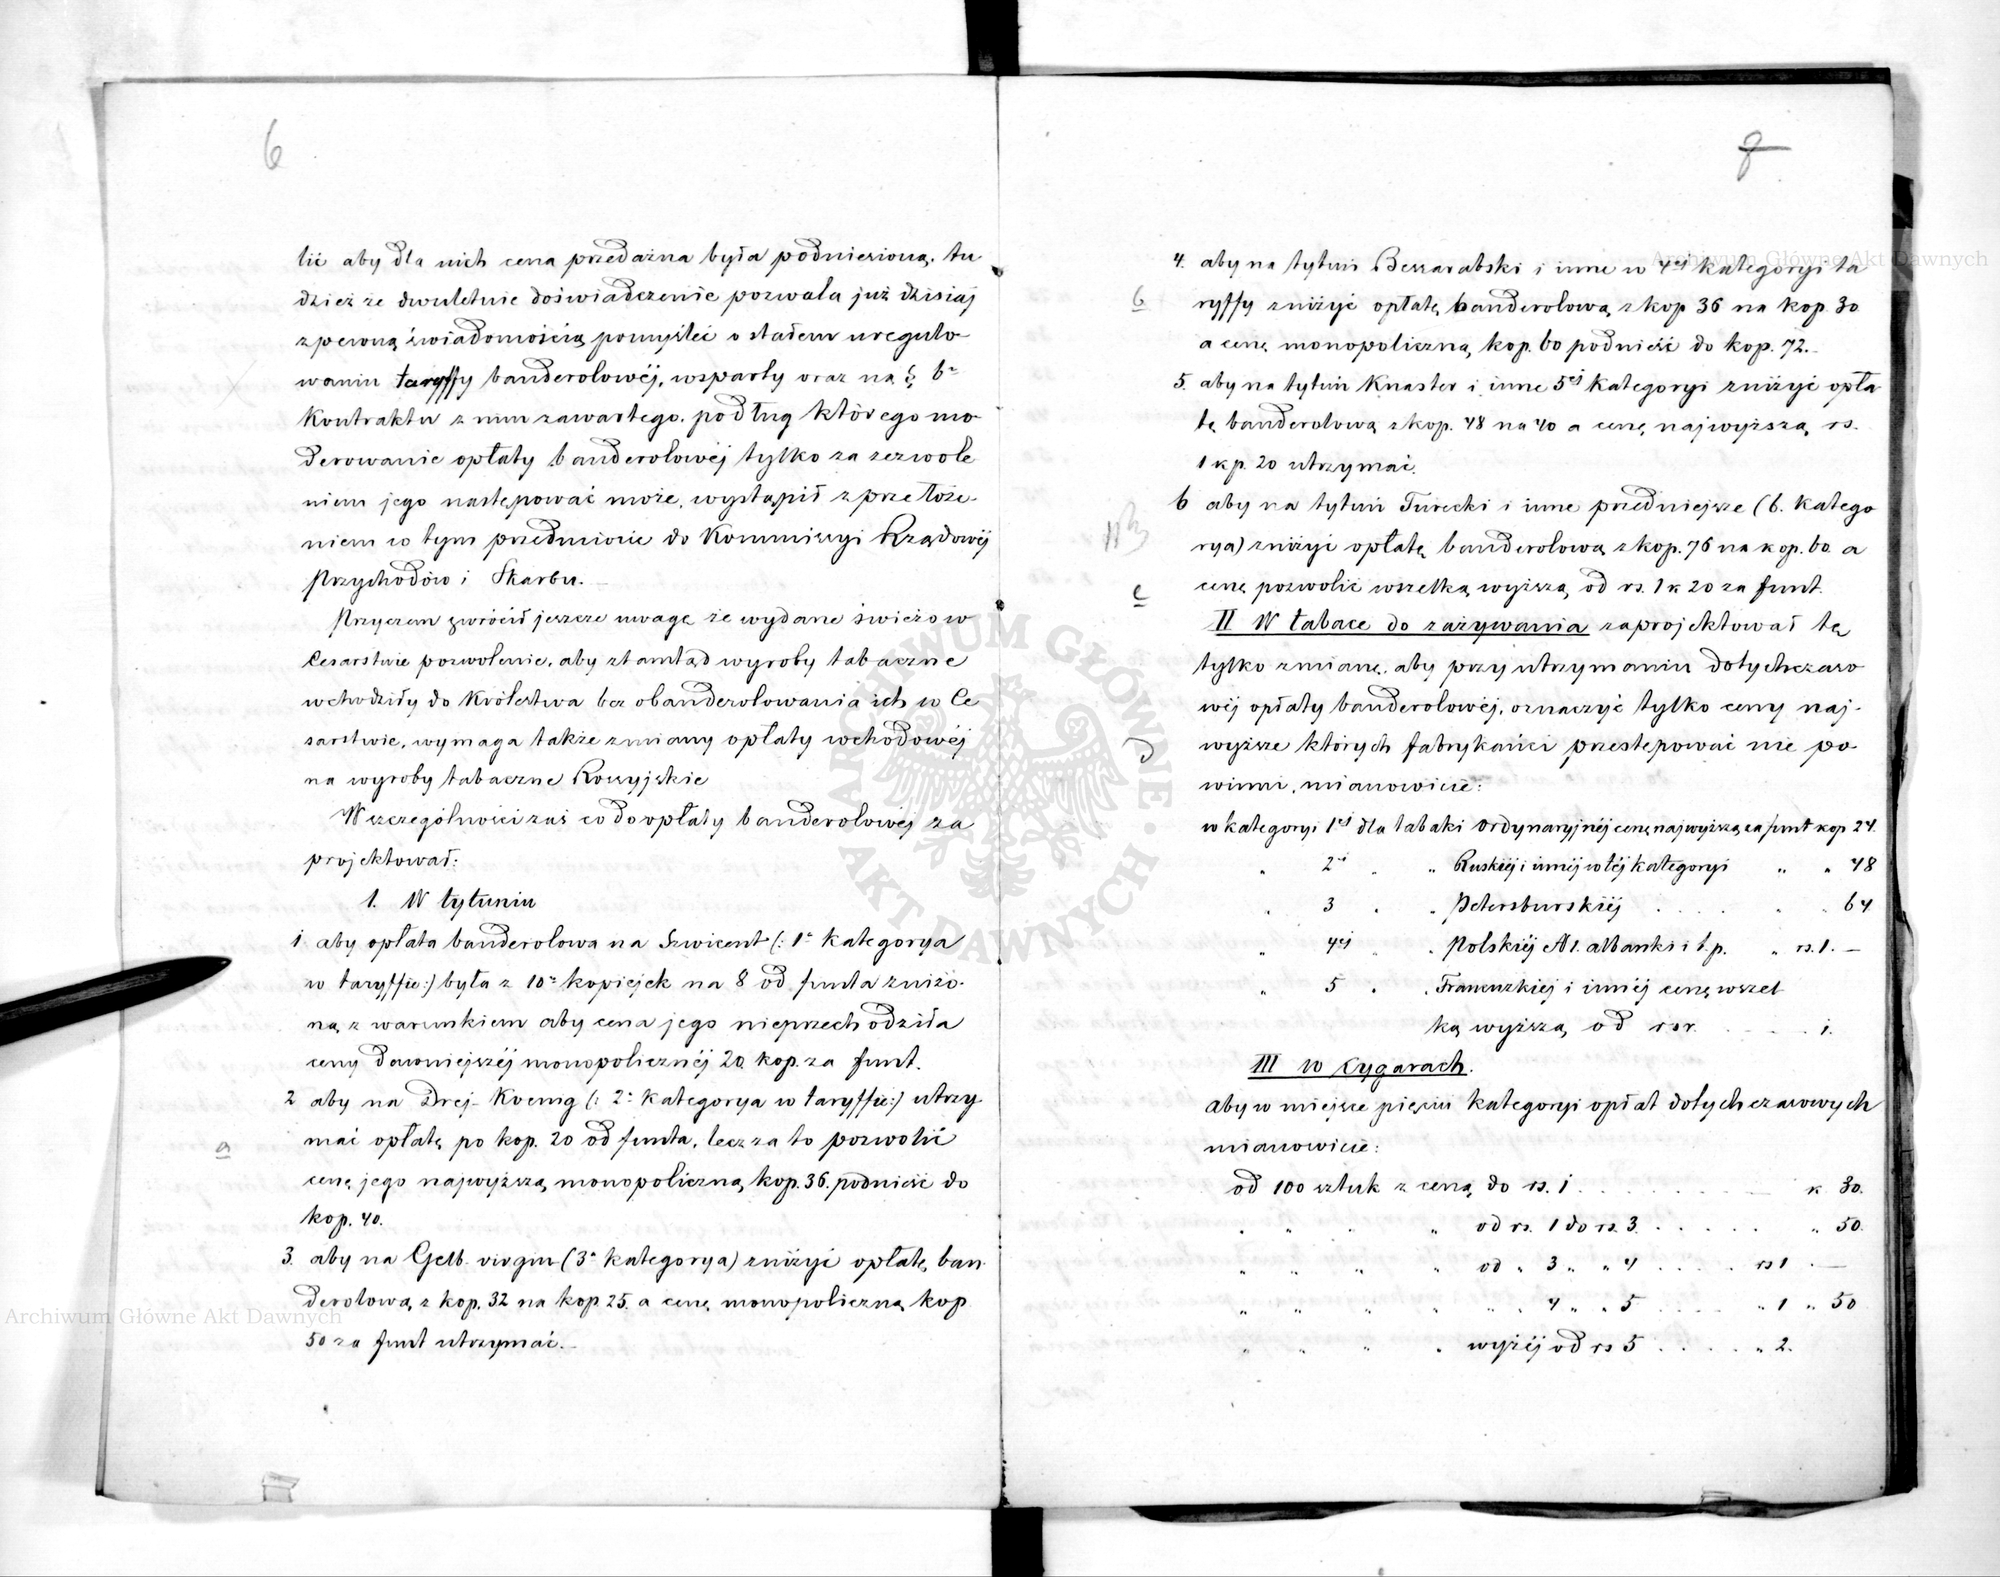 6
lić aby dla nich cena przedażna była podniesioną, tu
dzież że dwuletnie doświadczenie pozwala już dzisiaj
z pewną świadomością pomyśleć o stałem uregulo-
waniu taryffy banderolowéj, wsparty oraz na § 6m
Kontraktu z nim zawartego, podług którego mo-
derowanie opłaty banderolowéj tylko za zezwole
niem jego następować może, wystąpił z przełoże-
niem w tym przedmiocie do Kommissyi Rządowéj
Przychodów i Skarbu.
Przyczem zwrócił jeszcze uwagę że wydane świeżo w
Cesarstwie pozwolenie, aby ztamtąd wyroby tabaczne
wchodziły do Królestwa bez obanderolowania ich w Ce
sarstwie, wymaga także zmiany opłaty wchodowéj
na wyroby tabaczne Rossyjskie
W szczególności zaś co do opłaty banderolowéj za
projektował:
1. W tytuniu
1 aby opłata banderolowa na Szwicent (: 1a kategorya
w taryffie :) była z 10u kopiejek na 8 od funta zniżo-
ną z warunkiem aby cena jego nieprzechodziła
ceny dawniejszéj monopolicznéj 20 kop. za funt.
2 aby na Drej-Koenig (: 2a kategorya w taryffie :) utrzy
mać opłatę po kop. 20 od funta, lecz za to pozwolić
a
cenę jego najwyższą monopoliczną kop. 36. podnieść do
kop. 40.
3. aby na Gelb virgin (3a kategorya) zniżyć opłatę ban
derolową z kop. 32 na kop 25. a cenę monopoliczną kop
50 za funt utrzymać.
4. aby na tytuń Bessarabski i inne w 4éj kategoryi ta
b
ryffy zniżyć opłatę banderolową z kop 36 na kop 30
a cenę monopoliczną kop. 60 podnieść do kop. 72.
5. aby na tytuń Knaster i inne 5éj kategoryi zniżyć opła
tę banderolową z kop. 48 na 40 a cenę najwyższą rs.
1 kp. 20 utrzymać.
6 aby na tytuń Turecki i inne przedniejsze (6. katego
rya) zniżyć opłatę banderolową z kop. 76 na kop. 60. a
c
cenę pozwolić wszelką wyższą od rs. 1 k 20 za funt.
II W tabace do zażywania zaprojektował tę
tylko zmianę, aby przy utrzymaniu dotychczaso
wéj opłaty banderolowéj, oznaczyć tylko ceny naj-
d
wyższe których fabrykańci przestępować nie po
winni, mianowicie:
w kategoryi 1éj dla tabaki ordynaryjnéj cenę najwyższą za funt kop 24.
" 2éj " " Ruskiéj i innéj w téj kategoryi " " 48
" 3 " " Petersburskiéj . . . . " " 64
" 4éj " " Polskiéj No 1. albanki i t.p. " rs. 1. —
" 5 " " Francuzkiéj i innéj cenę wszel
ką wyższą od rsr. . . . . 1.
III w Cygarach.
aby w miejsce pięciu kategoryi opłat dotychczasowych
mianowicie:
od 100 sztuk z ceną do rs. 1 . . . . . . . k 30.
" " " " od rs. 1 do rs. 3 . . . . . " 50.
" " " " od " 3 " " 4 . . . . rs 1 . —
" " " " " " 4 " " 5 . . . . " 1 " 50
" " " " wyżéj od rs 5 . . . . . " 2.
Archiwum Główne Akt Dawnych
Archiwum Główne Akt Dawnych
ARCHIWUM GŁÓWNE AKT DAWNYCH